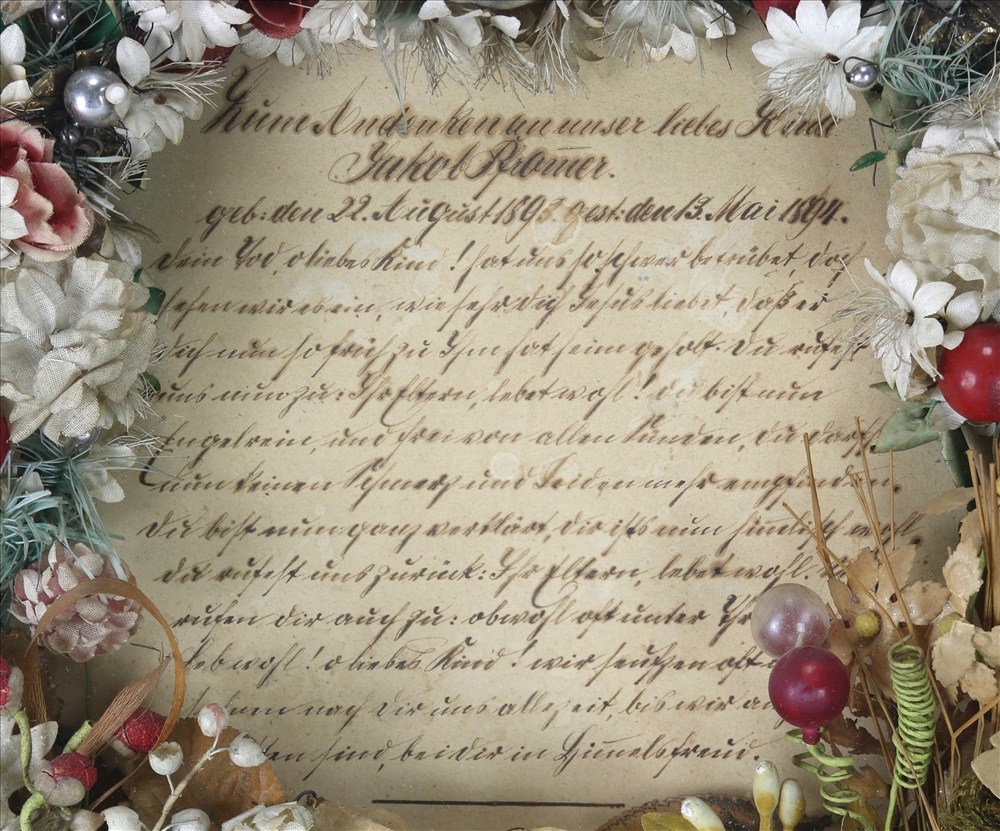 Zum Andenken an unser liebes Kind
Jakob Pfrom̄er.
geb: den 22. August 1893. gest: den 13. Mai 1894.
Dein Tod, o liebes Kind! hat uns so schwer betrübet, doch
sehen wir es ein, wie sehr dich Jesus liebet, daß er
dich nun so früh zu Ihm hat heim geholt. Du rufest
uns nun zu: Ihr Eltern, lebet wohl! du bist nun
Engelrein, und frei von allen Sünden, du darfst
nun keinen Schmerz und Leiden mehr empfinden.
Du bist nun ganz verklärt, dir ists nun him̄lisch wohl.
du rufest uns zurück: Ihr Eltern, lebet wohl.
rufen dir auch zu: obwohl oft unter
Leb wohl! o liebes Kind! wir seufzen oft
nach dir uns allezeit, bis wir
sind, bei dir in Him̄elsfreud.